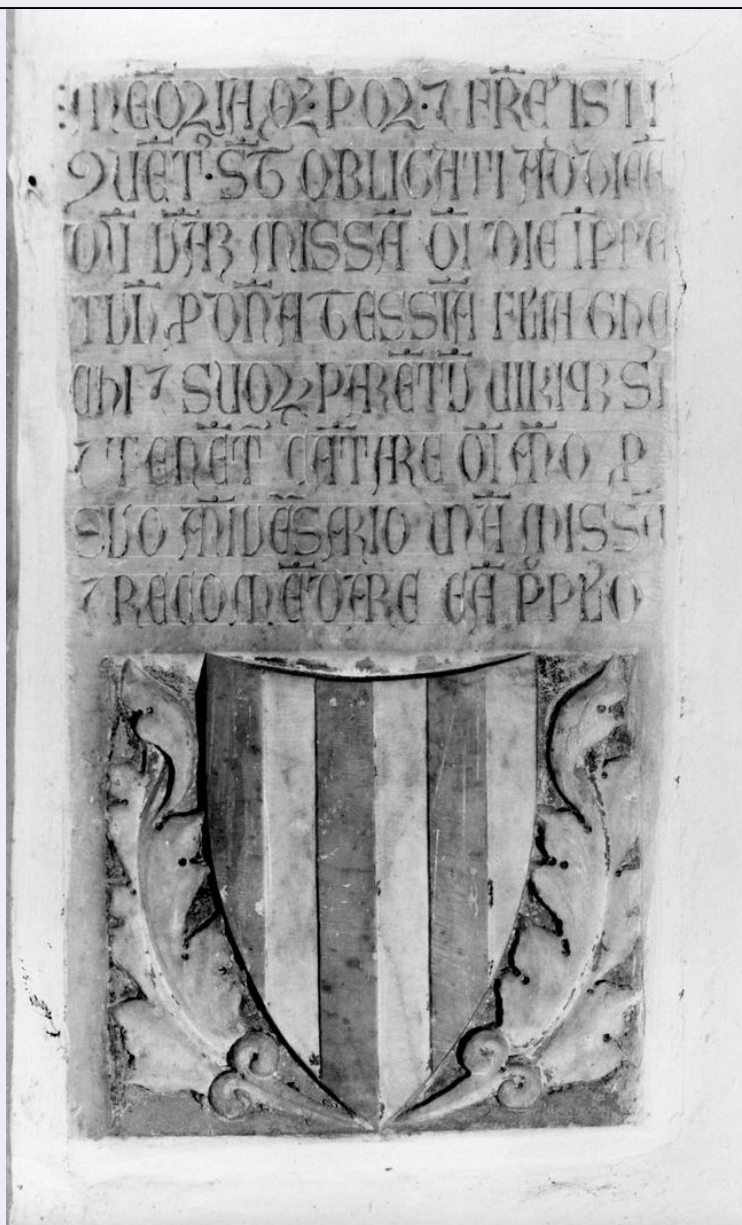 MEORIA QZ POR 7 FRES ISTI
9UET · ST OBLIGATI AD DICE
DU UAZ MISSA OI DIE IPPE
TUU P DNA TESSIA FILIA GHE
CHI 7 SUOR PARETU UIRIQZ SI
7 TENET CATARE OI AÑO P
SUO AIUESARIO UNA MISSA
7 RECOMEDARE EA PPLO